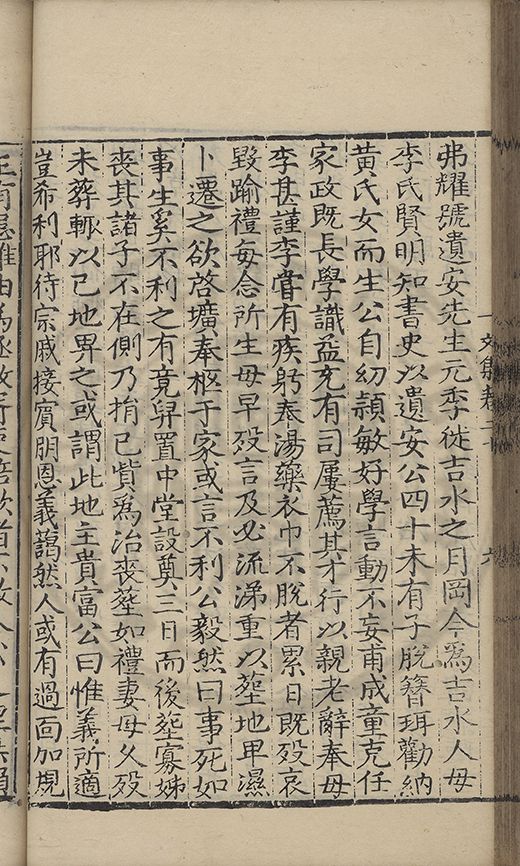 弗耀號遺安先生元季徙吉水之月岡今爲吉水人母
李氏賢明知書史以遺安公四十未有子脫簪珥勸納
黃氏女而生公自幼頴敏好學言動不妄甫成童克任
家政既長學識益充有司屢薦其才行以親老辭奉母
李甚謹李嘗有疾躬奉湯藥衣巾不脫者累日既歿哀
毀踰禮每念所生母早歿言及必流涕重以塟地卑濕
卜遷之欲啓壙奉柩于家或言不利公毅然曰事死如
事生奚不利之有竟舁置中堂設奠三日而後塟寡姊
喪其諸子不在側乃捐已貲爲治喪塟如禮妻母久歿
未葬輙以已地畀之或謂此地主貴富公曰惟義所適
豈希利耶待宗戚接賓朋恩義藹然人或有過面加規
文集卷二
六